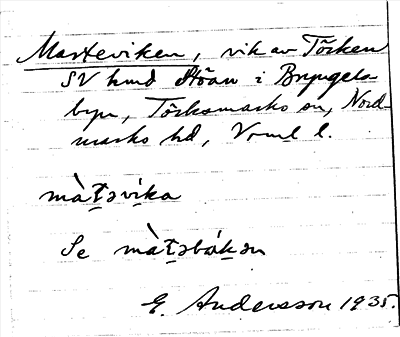 Marteviken, vik av Töcken
SV hmd Höan i Bryngels-
byn, Töcksmarks sn, Nord-
marks hd, Vrml l.
màt̠əvi̠ka
Se màt̠əbák̠ən
E. Andersson 1935.